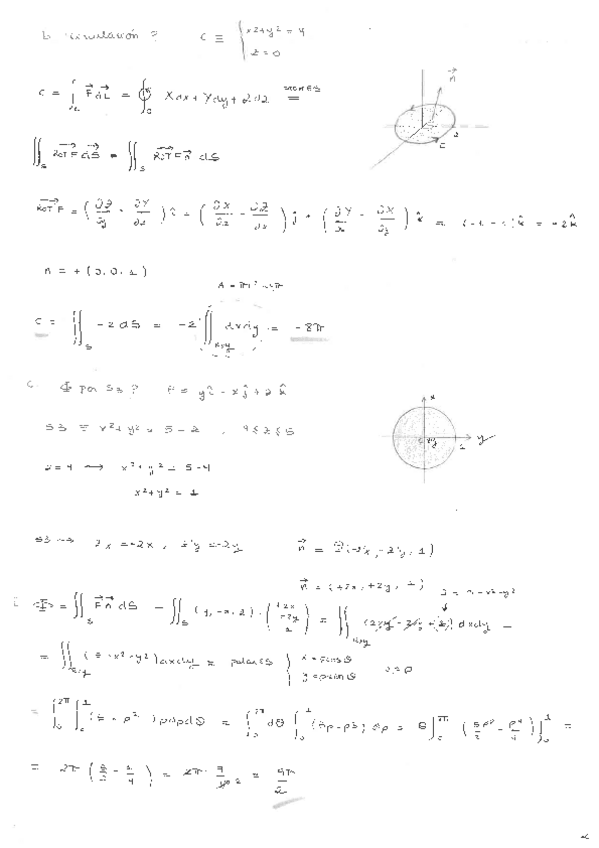 b. circulación? C ≡ { x²+y² = 4
z = 0
C = ∫ F dL = ∮ Xdx + Ydy + Zdz = STOKES
∬_S ROT F dS = ∬_S ROT F n dS
ROT F = (∂Z/∂y - ∂Y/∂z) î + (∂X/∂z - ∂Z/∂x) ĵ + (∂Y/∂x - ∂X/∂y) k̂ = (-1-1) k̂ = -2k̂
n = +(0,0,1)
C = ∬_S -2 dS = -2 ∬ dxdy = -8π
Φ por S3? F = yî - xĵ + z k̂
S3 ≡ x²+y² = 5-z, 4≤z≤5
z=4 → x²+y² = 5-4
x²+y² = 1
S3 → z'x = -2x, z'y = -2y
n = (+2x, +2y, 1)
Φ = ∬_S F n dS
= ∬ (5-x²-y²) dxdy = polares { x = ρcosθ
y = ρsinθ
= ∫₀^2π ∫₀^1 (5-ρ²) ρdρdθ = ∫₀^2π dθ ∫₀^1 (5ρ-ρ³) dρ = θ]₀^2π (5ρ²/2 - ρ⁴/4)]₀^1 =
= 2π (5/2 - 1/4) = 2π · 9/4 = 9π/2